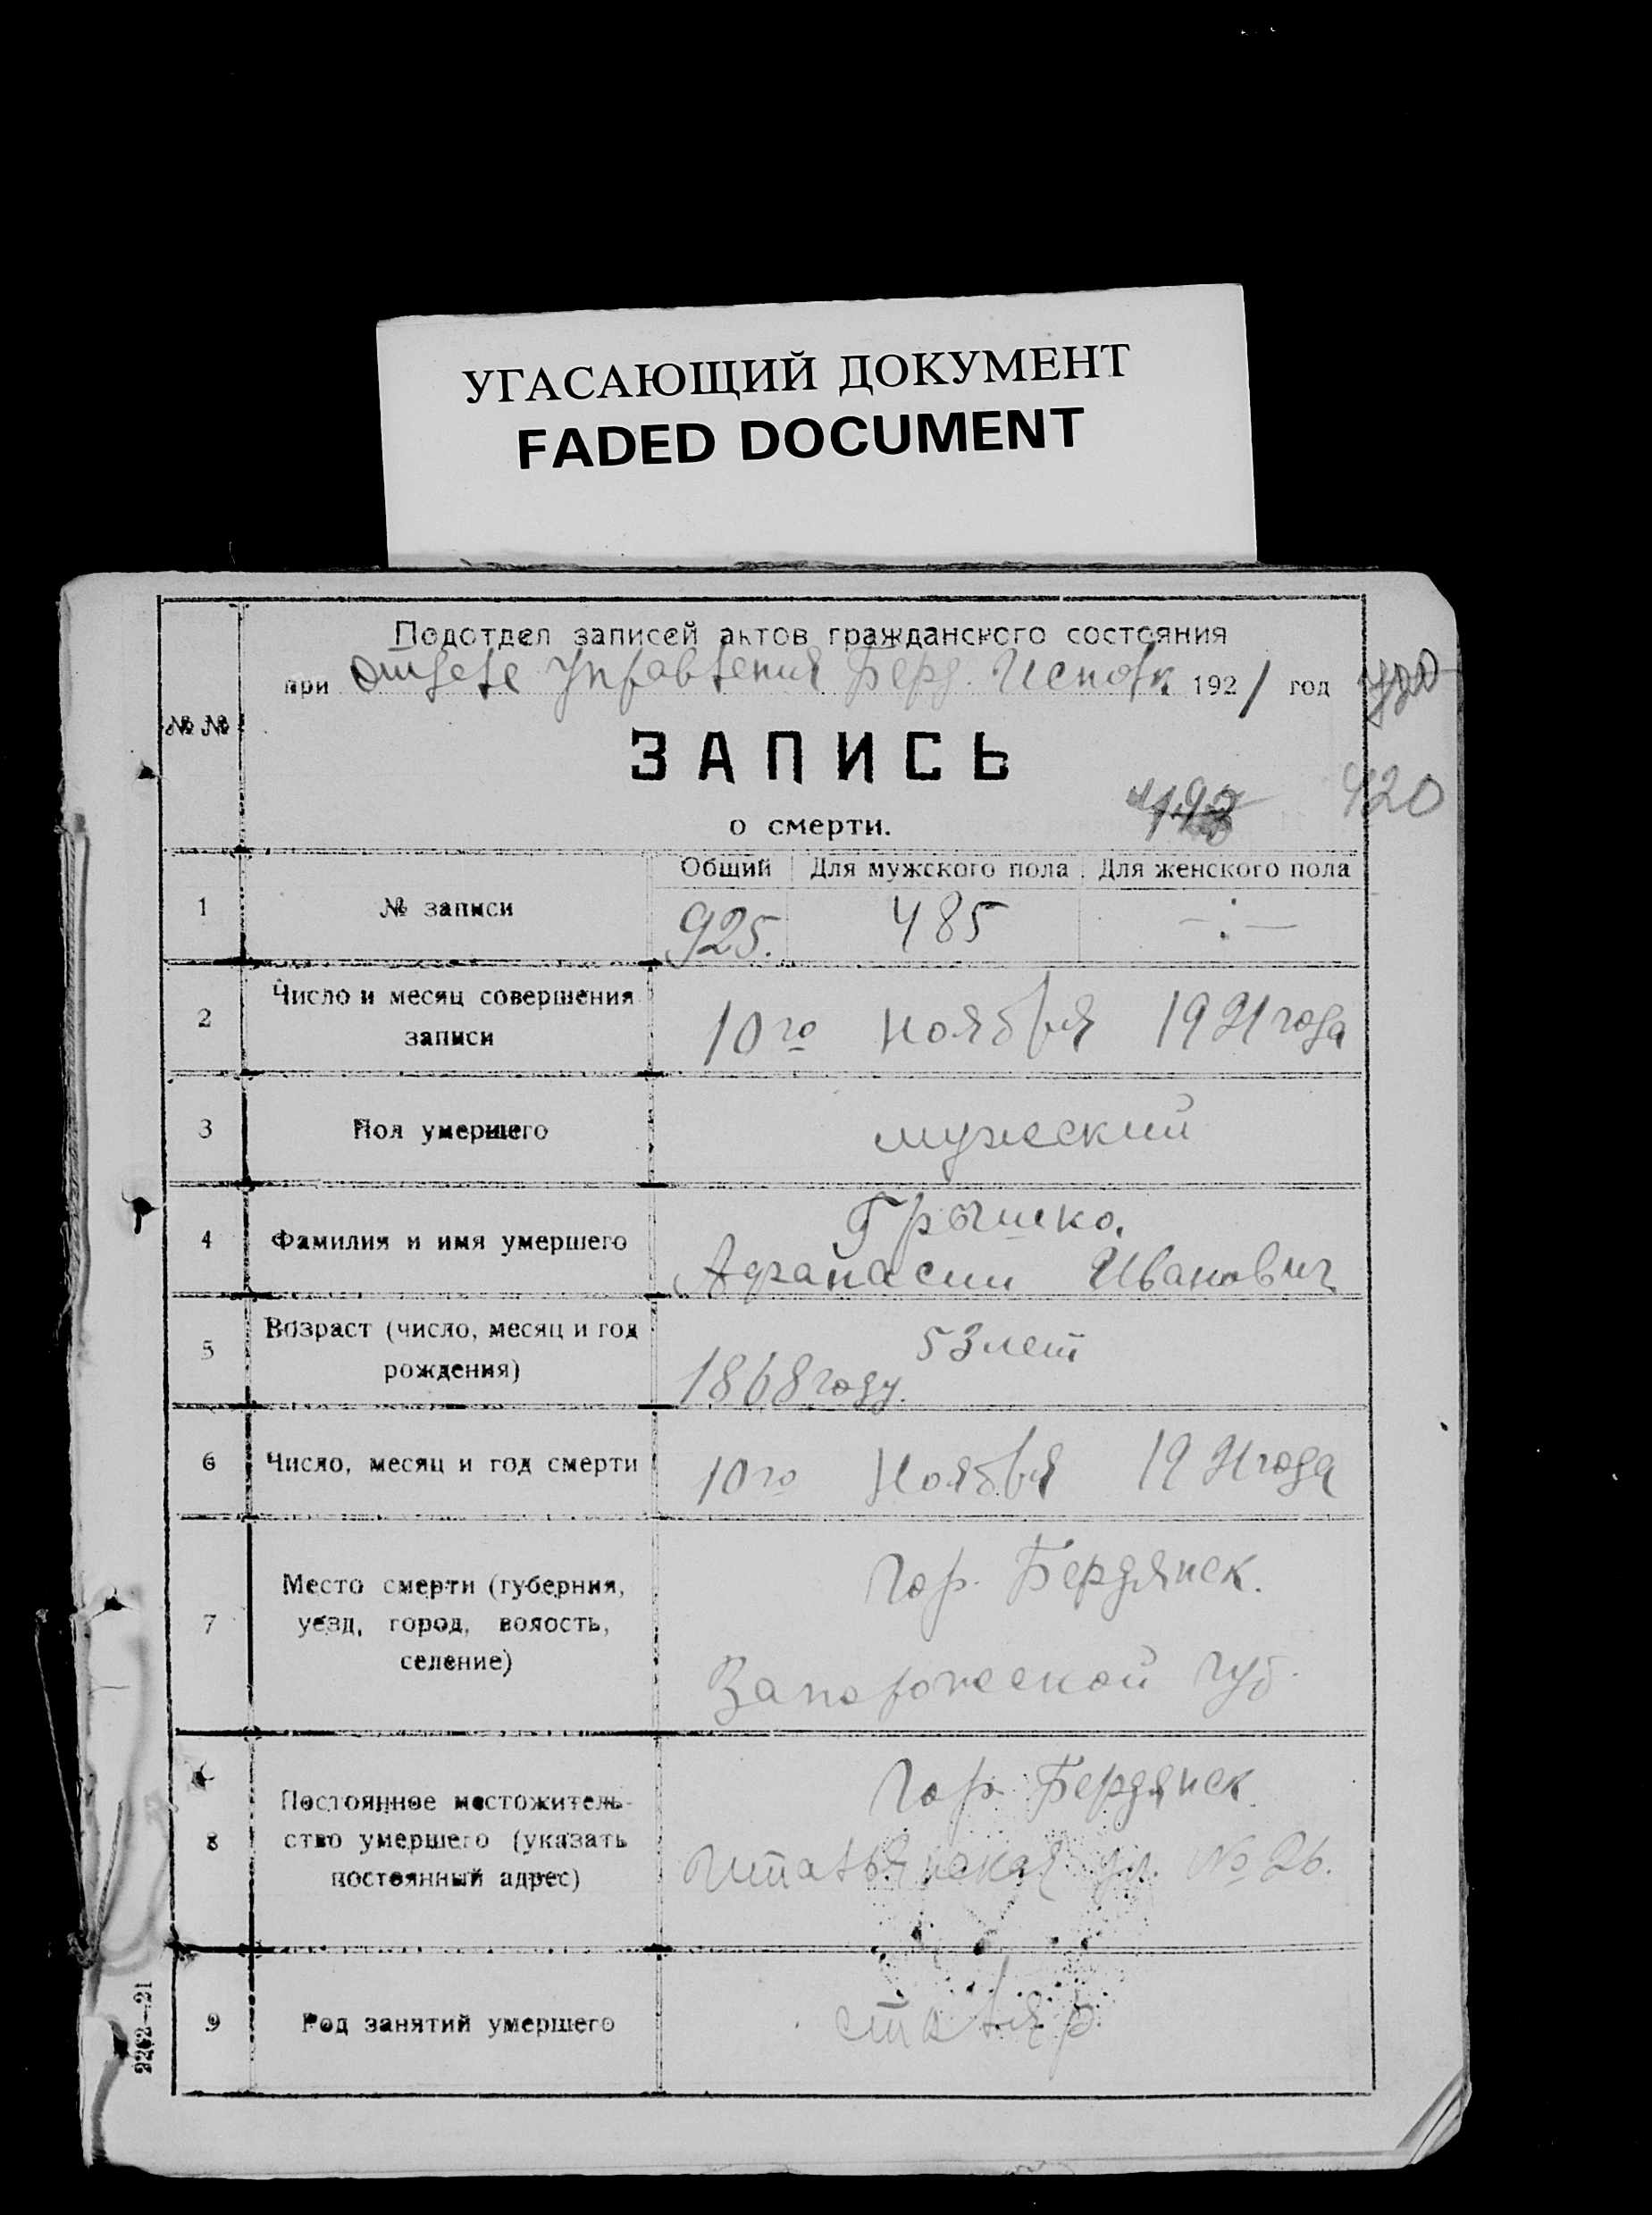 УГАСАЮЩИЙ ДОКУМЕНТ
FADED DOCUMENT
Подотдел записей актов гражданского состояния
при отделе Управления Берд. Исполк 1921 год
№ №
ЗАПИСЬ
о смерти.
420
Общий Для мужского пола Для женского пола
1 № записи 925. 485 —:—
2 Число и месяц совершения
записи
10го ноября 1921 года
3 Пол умершего мужеский
4 Фамилия и имя умершего
Грышко.
Афанасии Иванович
5 Возраст (число, месяц и год
рождения)
53 лет
1868 году.
6 Число, месяц и год смерти 10го Ноября 1921 года
7 Место смерти (губерния,
уезд, город, волость,
селение)
Гор. Бердянск.
Запорожеской губ.
8 Постоянное местожитель-
ство умершего (указать
постоянный адрес)
Гор. Бердянск.
Итальянская ул. № 26.
9 Род занятий умершего столяр
2262—21